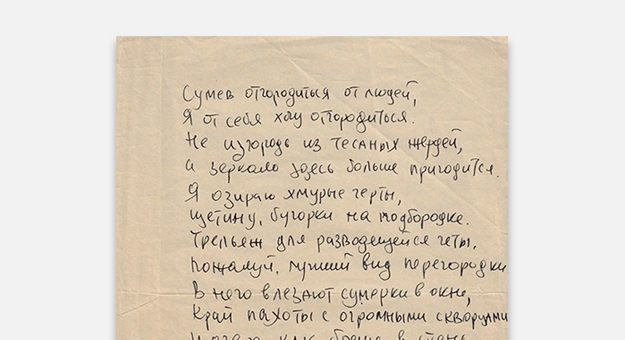 Сумев отгородиться от людей,
Я от себя хочу отгородиться.
Не изгородь из тесаных жердей,
а зеркало здесь больше пригодится.
Я озираю хмурые черты,
щетину, бугорки на подбородке.
Трельяж для разводещейся четы,
пожалуй, лучший вид перегородки
В него влезают сумерки в окне,
край пахоты с огромными скворцами
И озеро как брешь в стене